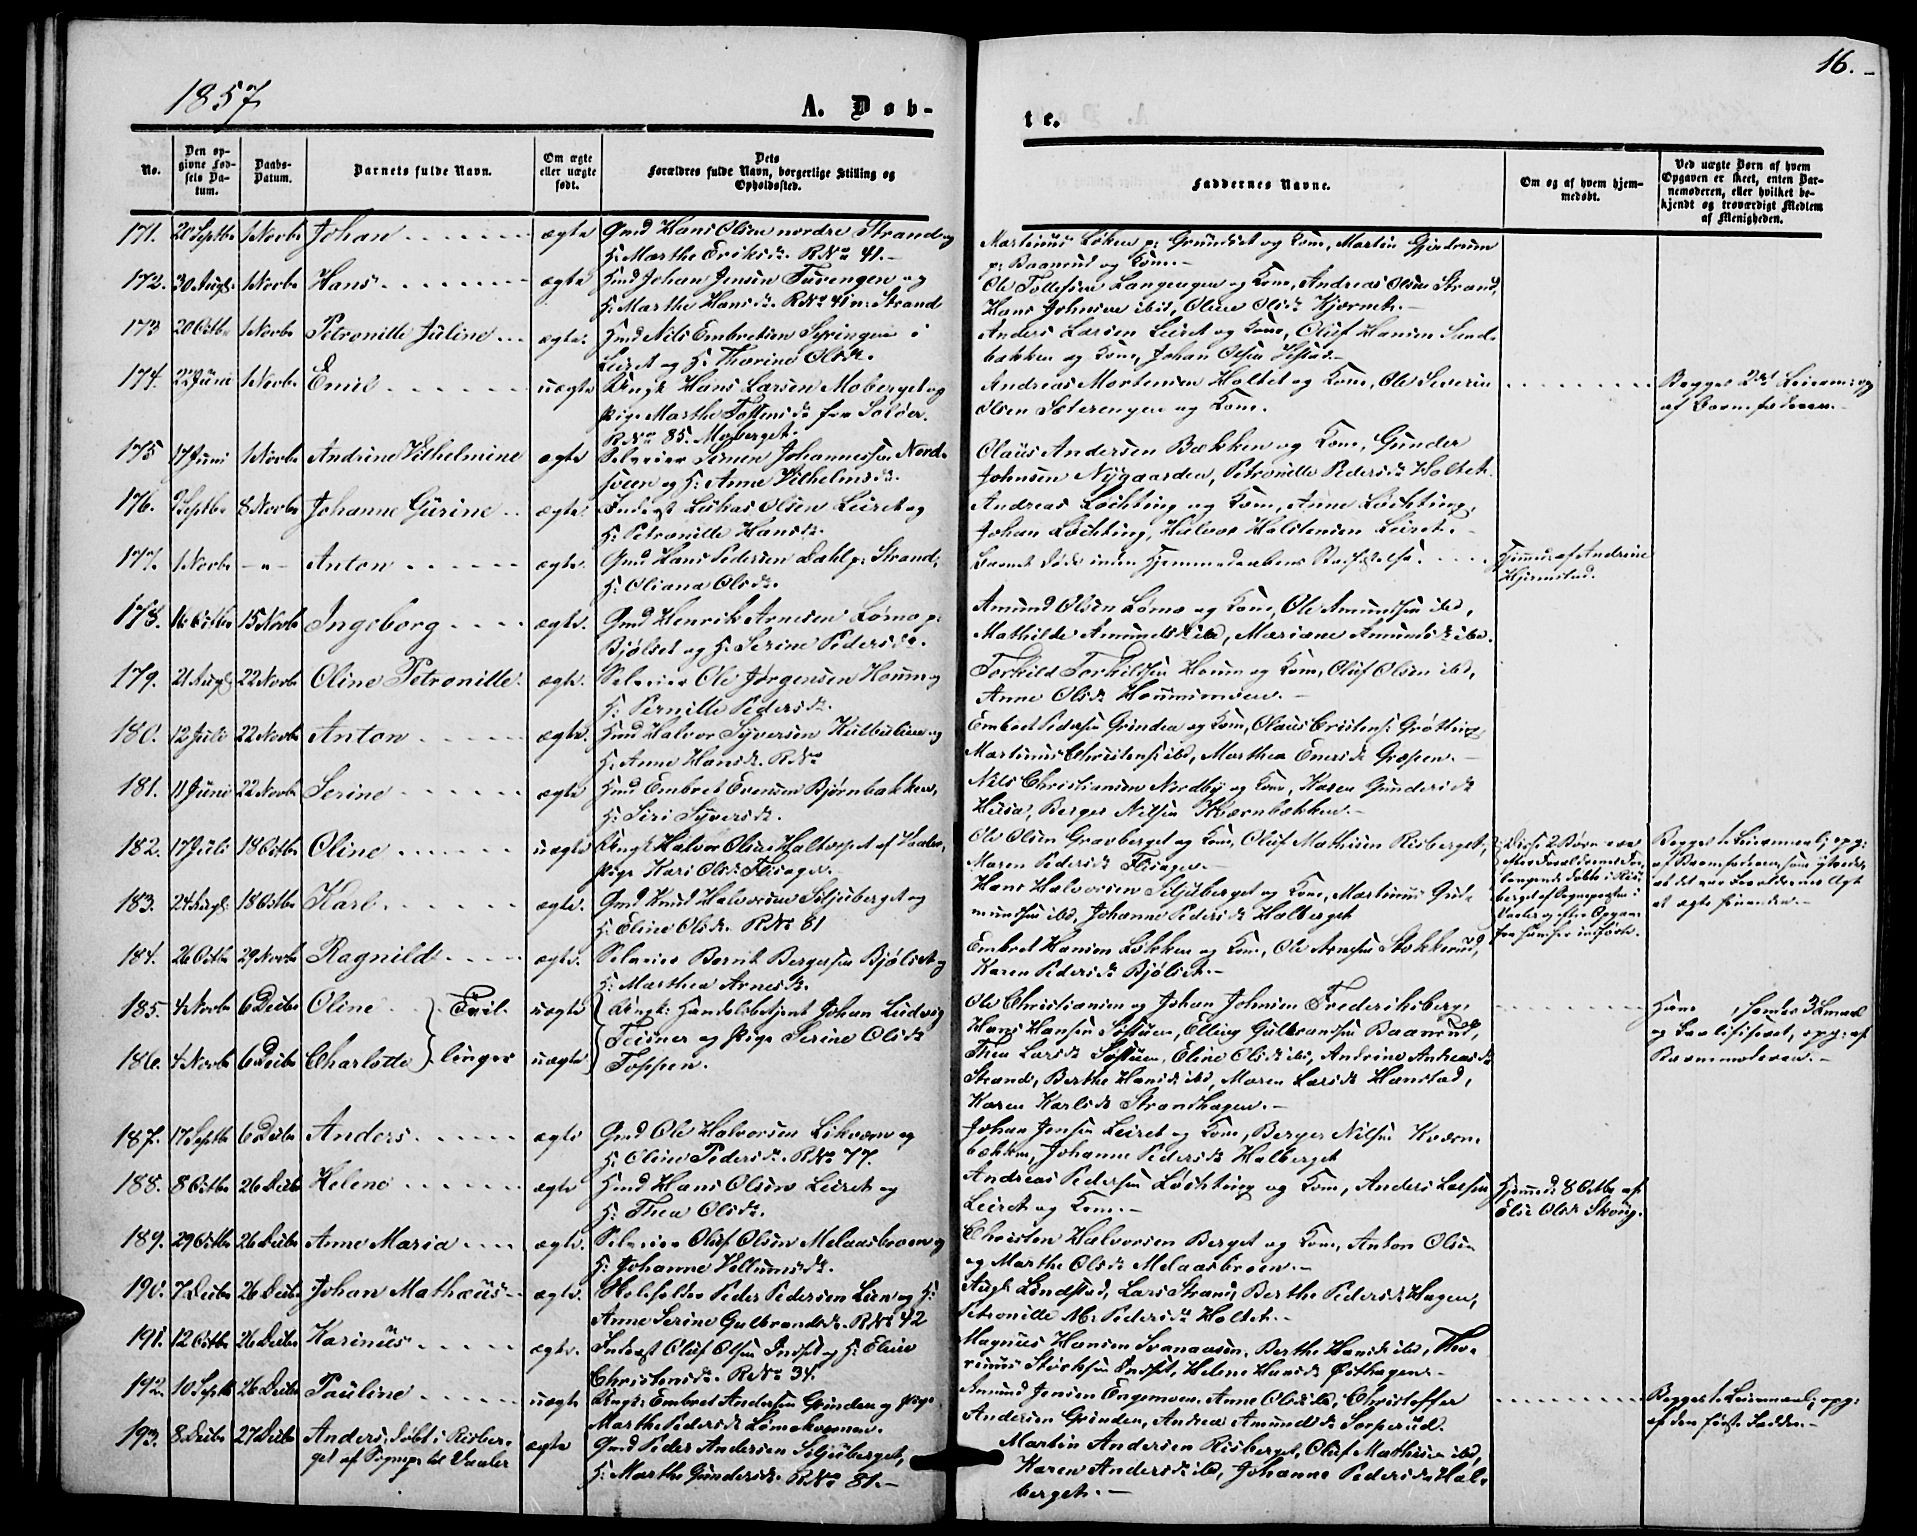 1857
A. Døb-
te.
16.
No.
Den op-
givne Fød-
sels Da-
tum.
Daabs-
Datum.
Barnets fulde Navn.
Om ægte
eller uægte
født.
Dets
Forældres fulde Navn, borgerlige Stilling og
Opholdssted.
Faddernes Navne.
Om og af hvem hjem-
medøbt.
Ved uægte Børn af hvem
Opgaven er skeet, enten Bar-
nemoderen, eller hvilket be-
kjendt og troværdigt Medlem
af Menigheden.
171. 20 Septbr 1 Novbr Johan ægte Gmd Hans Olsen nordre Strand og
H: Marthe Eriksd. R No 41.
Martinus Løken p: Grundset og Kone, Martin Gjødrum
p: Baanrud og Kone.
172. 30 Augs 1 Novbr Hans ægte Hmd Johan Jensen Furengen og
H: Marthe Hansd. R No 41 n: Strand
Ole Tollefsen Langengen og Kone, Andreas Olsen Strand,
Hans Johnsen ibd, Oline Olsd Hjørnet.
173 20 Octbr 1 Novbr Petronille Juline ægte Hmd Nils Embretsen Syringen i
Leiret og H: Thorine Olsd.
Anders Larsen Leiret og Kone, Oluf Hansen Sand-
bakken og Kone, Johan Olsen
174. 22 Juni 1 Novbr Emil uægte Ungk Hans Larsen Moberget og
Pige Marthe Tostensd fra Solør.
R No 85. Moberget.
Andreas Mortensen Holtet og Kone, Ole Severin
Olsen Sæterengen og Kone.
Begges 2det Leierm: og
af Barnefaderen.
175 17 Juni 1 Novbr Andrine Vilhelmine ægte Selveier Simen Johannesen Nord-
och H: Anne Vilhelmsd.
Olaus Andersen Bækken og Kone, Gunder
Johnsen Nygaarden, Petronille Pedersd Holtet.
176. 9 Septbr 8 Novbr Johanne Gurine ægte Inderst Lukas Olsen Leiret og
H: Petronille Hansd.
Andreas Løchting og Kone, Anne Løchting,
Johan Løchting, Halvor Halstensen Leiret.
177. 1 Novbr -"- Anton ægte Gmd Hans Pedersen Dahl p: Strand,
H: Oliana Olsd.
Barnet døde inden Hjemmedaabens Stadfæstelse.
Hjemmed: af Andrine
Hjermstad.
178. 16 Octbr 15 Novbr Ingeborg ægte. Gmd Henrik Arnesen Lømo p:
Bjølset og H: Serine Pedersd.
Amund Olsen Lømo og Kone, Ole Amundsen ibd,
Mathilde Amundsd ibd, Mariane Amundsd ibd.
179. 21 Augs 22 Novbr Oline Petronille. ægte. Selveier Ole Jørgensen Houm og
H: Pernille Pedersd.
Torkild Torkildsen Houm og Kone, Oluf Olsen ibd,
Anne Olsd Houmsmoen.
180. 12 Juli 22 Novbr Anton ægte. Hmd Halvor Syversen Kulbulien og
H: Anne Hansd. R No
Embret Pedersen Grinden og Kone, Olaus Cristens: Grøtting
Martinus Christens: ibd, Marthea Enersd Græsen.
181. 11 Juni 22 Novbr Serine ægte Hmd Embret Evensen Bjørnbakken,
H: Siri Syversd.
Nils Christiansen Nordby og Kone, Karen Gundersd
Berger Nilsen Kværnbækken.
182. 17 Juli 18 Octbr Oline uægte Ungk Halvor Olsen Haltorpet af Vaaler,
Pige Kari Olsd Flisagen.
Ole Olsen Gravberget og Kone, Oluf Mathisen Risberget,
Maren Pedersd Flisagen.
Disse 2 Børn ere
efter Forældrenes For-
langende døbte i Ris-
berget af Sognepræsten i
Vaaler og efter Opgave
fra ham her indførte.
Begges 1ste Leiermaal; opg:
af Barnefaderen som ytrede
at det var Forældrenes Agt
at ægte hinanden.
183. 24 Augs 18 Octbr Karl ægte. Gmd Knud Halvorsen Siljuberget og
H: Eline Olsd. R No 81
Hans Halvorsen Siljuberget og Kone, Martinus Gul-
mundsen ibd, Johanne Pedersd Halberget
184. 26 Octbr 29 Novbr Ragnild ægte. Selveier Bernt Bergersen Bjølset og
H: Marthea Arnesd.
Embret Hansen Løkken og Kone, Ole Arnesen Stokkerud,
Karen Pedersd Bjølset.
185. 4 Novbr 6 Decbr Oline } Tvil- uægte { Ungk: Handelsbetjent Johan Ludvig
186. 4 Novbr 6 Decbr Charlotte } linger uægte Feisner og Pige Serine Olsd
Toppen.
Ole Christiansen og Johan Johnsen Frederiksberg,
Hans Hansen Søstuen, Elling Gulbrandsen Baanrud,
Thea Larsd Søstuen, Eline Olsd ibd, Andrine Andreasd
Strand, Berthe Hansd ibd, Maren Larsd Hanstad,
Karen Karlsd Strandhagen.
Hans , hendes 3 Leierm
og , opg: af
Barnemoderen.
187. 17 Septbr 6 Decbr Anders ægte Gmd Ole Halvorsen Likværn og
H: Oline Pedersd. R No 77.
Johan Jensen Leiret og Kone, Berger Nilsen Kværn-
bækken, Johanne Pedersd Halberget
188. 8 Octbr 26 Decbr Helene ægte Hmd Hans Olsen Leiret og
H: Thea Olsd.
Andreas Pedersen Løchting og Kone, Anders Larsen
Leiret og Kone.
Hjemmed: 8 Octbr af
Elie Olsd Skoug.
189. 29 Octbr 26 Decbr Anne Maria ægte. Selveier Oluf Olsen Melaasbroen og
H: Johanne Vellumsd.
Christen Halvorsen Berget og Kone, Anton Olsen
og Marthe Olsd Melaasbroen.
190. 7 Decbr 26 Decbr Johan Mathæus ægte. Skoleholder Peder Pedersen Lien og H:
Anne Serine Gulbrandsd. R No 42
Augs Lindstad, Lars Strand, Berthe Pedersd Hagen,
Petronille M: Pedersd Holtet.
191. 12 Octbr 26 Decbr Karinus ægte. Inderst Oluf Olsen Indset og H: Eline
Christensd. R No 34.
Magnus Hansen Svenaasen, Berthe Hansd ibd, Tho-
rinus Indset, Helene Hansd Østhagen.
192. 10 Septbr 26 Decbr Pauline uægte Ungk: Embret Andersen Grinden og Pige
Marthe Pedersd Lømokvernen.
Amund Jensen Engemoen, Anne Olsd ibd, Christoffer
Andersen Grinden, Andrea Amundsd Sorperud.
Begges 1ste Leiermaal; opg:
af den første Fadder.
193. 8 Decbr 27 Decbr Anders, døbt i Risber-
get af Sognepr: til Vaaler ægte Gmd Peder Andersen Siljuberget,
H: Marthe Gundersd. R No 81.
Martin Andersen Risberget, Oluf Mathisen ibd,
Karen Andersd ibd, Johanne Pedersd Hal-
berget.